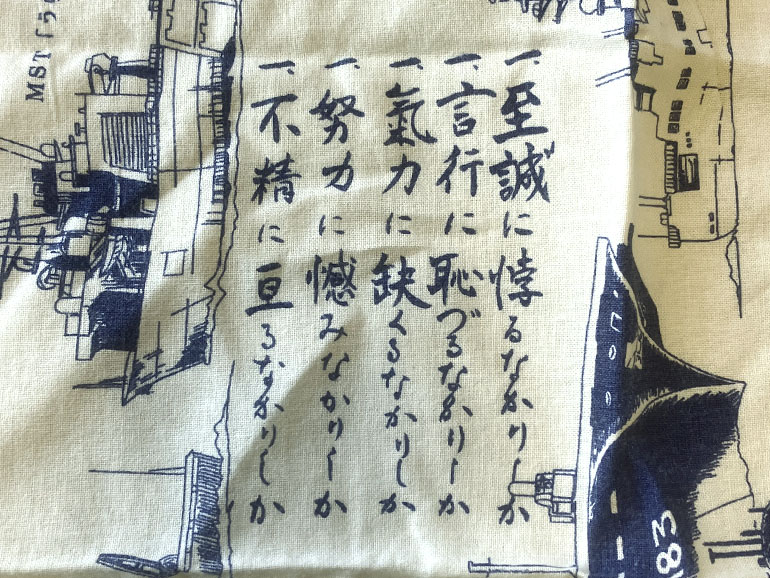 一、至誠に悖るなかりしか
一、言行に恥づるなかりしか
一、氣力に缺くるなかりしか
一、努力に憾みなかりしか
一、不精に亘るなかりしか
MST「う
183